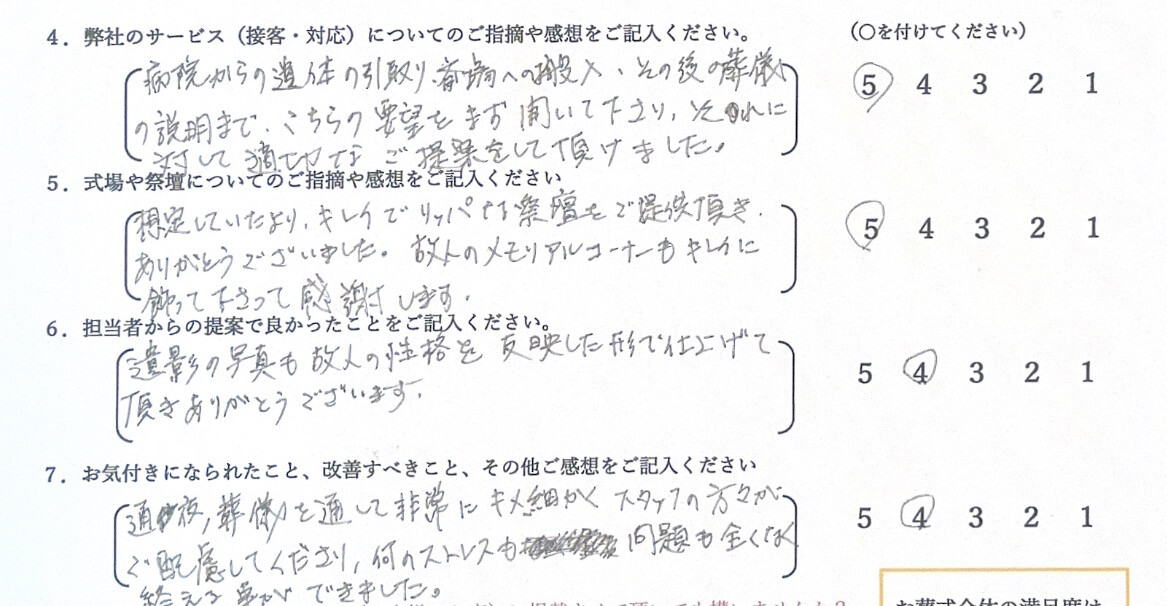 4．弊社のサービス（接客・対応）についてのご指摘や感想をご記入ください。
（○を付けてください）
病院からの遺体の引取り、斎場への搬入、その後の葬儀
の説明まで、こちらの要望をまず聞いて下さり、それに
対して適切なご提案をして頂けました。
5 4 3 2 1
5．式場や祭壇についてのご指摘や感想をご記入ください
想定していたより、キレイでリッパな祭壇をご提供頂き、
ありがとうございました。故人のメモリアルコーナーもキレイに
飾って下さって感謝します。
5 4 3 2 1
6．担当者からの提案で良かったことをご記入ください。
遺影の写真も故人の性格を反映した形で仕上げて
頂きありがとうございます。
5 4 3 2 1
7．お気付きになられたこと、改善すべきこと、その他ご感想をご記入ください
通夜，葬儀を通して非常にキメ細かくスタッフの方々が
ご配慮してくださり，何のストレスも問題も全くなく
終える事ができました。
5 4 3 2 1
お葬式全体の満足度は